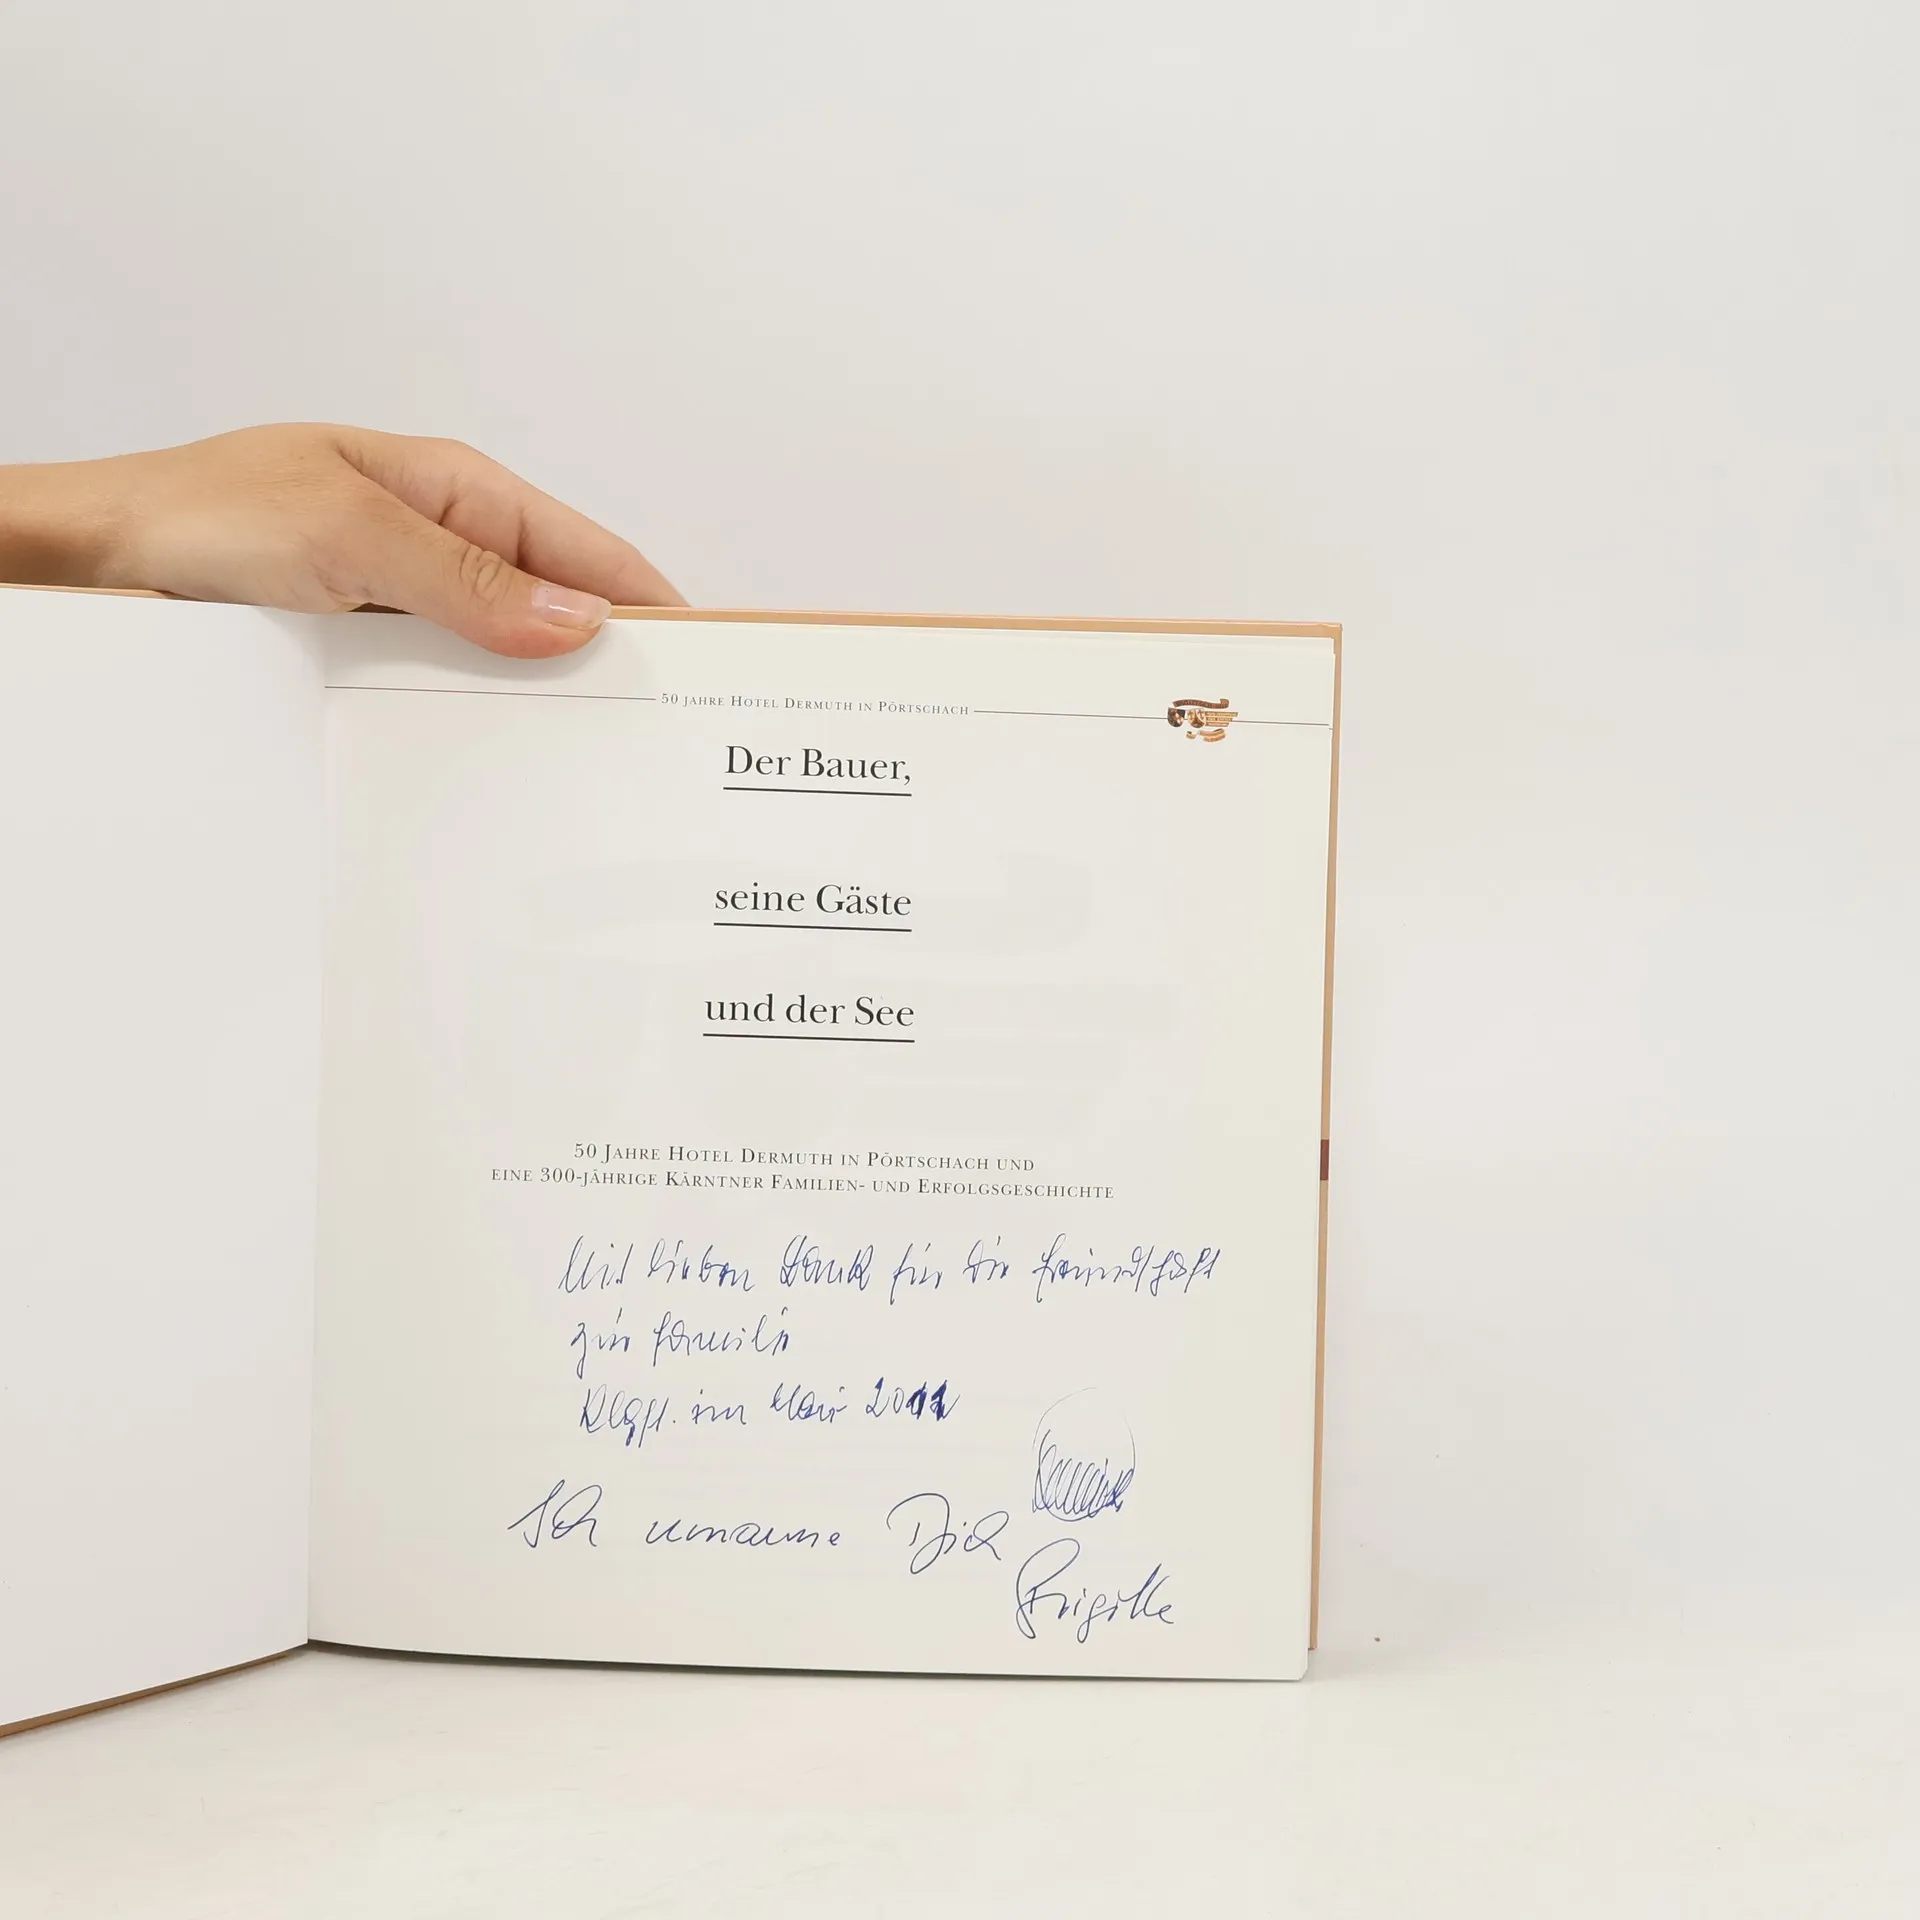 50 JAHRE HOTEL DERMUTH IN PÖRTSCHACH
Der Bauer,
seine Gäste
und der See
50 JAHRE HOTEL DERMUTH IN PÖRTSCHACH UND
EINE 300-JÄHRIGE KÄRNTNER FAMILIEN- UND ERFOLGSGESCHICHTE
Mit lieben Dank für die Freundschaft
zur Familie
Klgft. im Mai
Ich umarme Dich
Brigitte